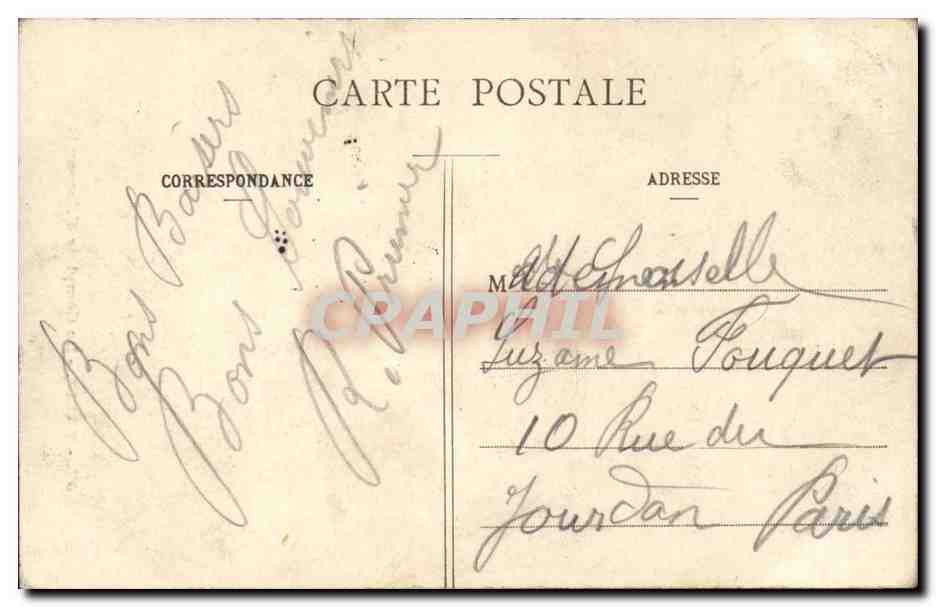 CARTE POSTALE
CORRESPONDANCE
ADRESSE
Bons Baisers
Bons Souvenirs
R. Prumier
Mademoiselle
Suzanne Fouquet
10 Rue du
Jourdan Paris
CRAPHIL